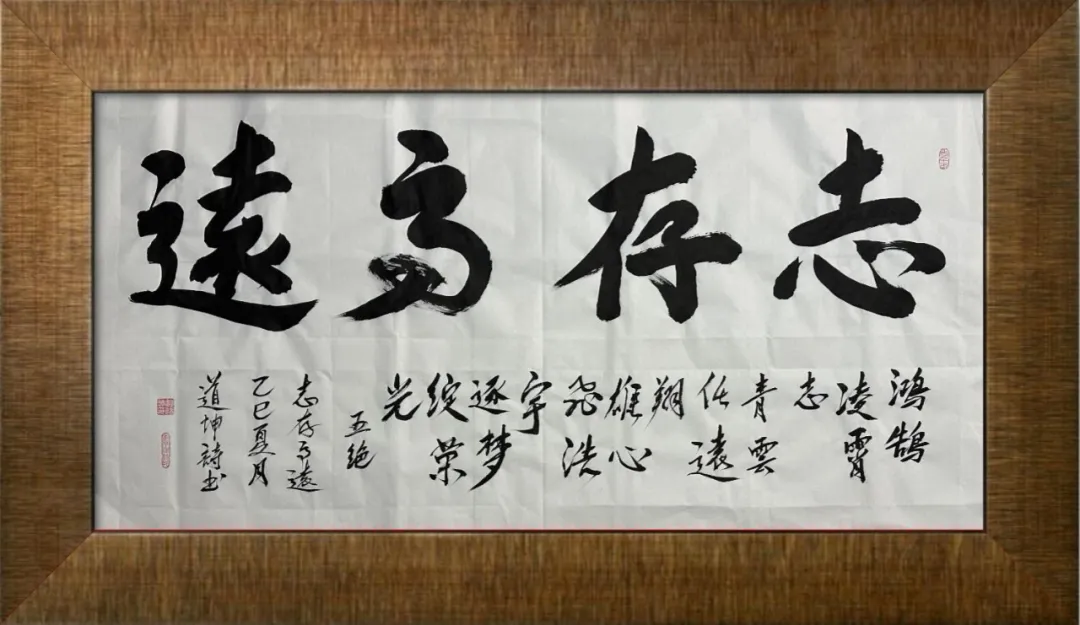 志存高遠
鸿鹄
凌霄
志
青雲
任遠
翔
雄心
飛浩
宇
逐梦
绽荣
光
五绝
志存高遠
乙巳夏月
道坤詩书